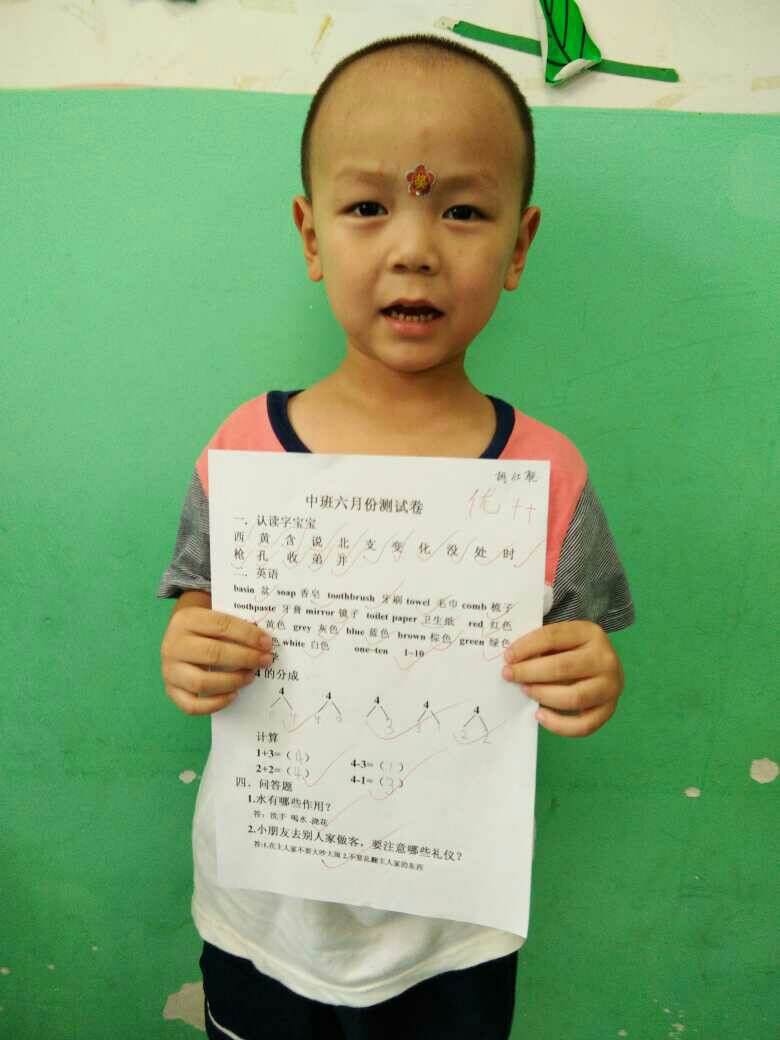 优++
中班六月份测试卷
一．认读字宝宝
西 黄 含 说 北 支 变 化 没 处 时
枪 孔 收 弟 升
二．英语
basin 盆 soap 香皂 toothbrush 牙刷 towel 毛巾 comb 梳子
toothpaste 牙膏 mirror 镜子 toilet paper 卫生纸 red 红色
黄色 grey 灰色 blue 蓝色 brown 棕色 green 绿色
色 white 白色 one-ten 1-10
学
4 的分成
4 4 4 4 4
4 3 3 1 2 2
计算
1+3=（4） 4-3=（1）
2+2=（4） 4-1=（3）
四．问答题
1.水有哪些作用？
答：洗手 喝水 浇花
2.小朋友去别人家做客，要注意哪些礼仪？
答:1.在主人家不要大吵大闹 2.不要乱翻主人家的东西